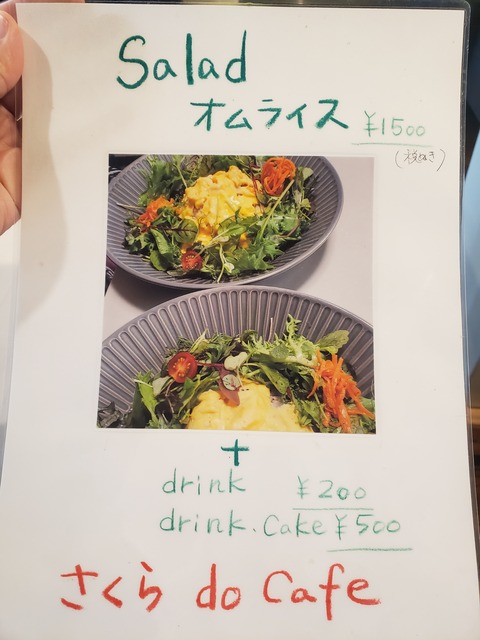 Salad
オムライス ¥1500
(税ぬき)
+
drink ¥200
drink.Cake ¥500
さくら do Cafe